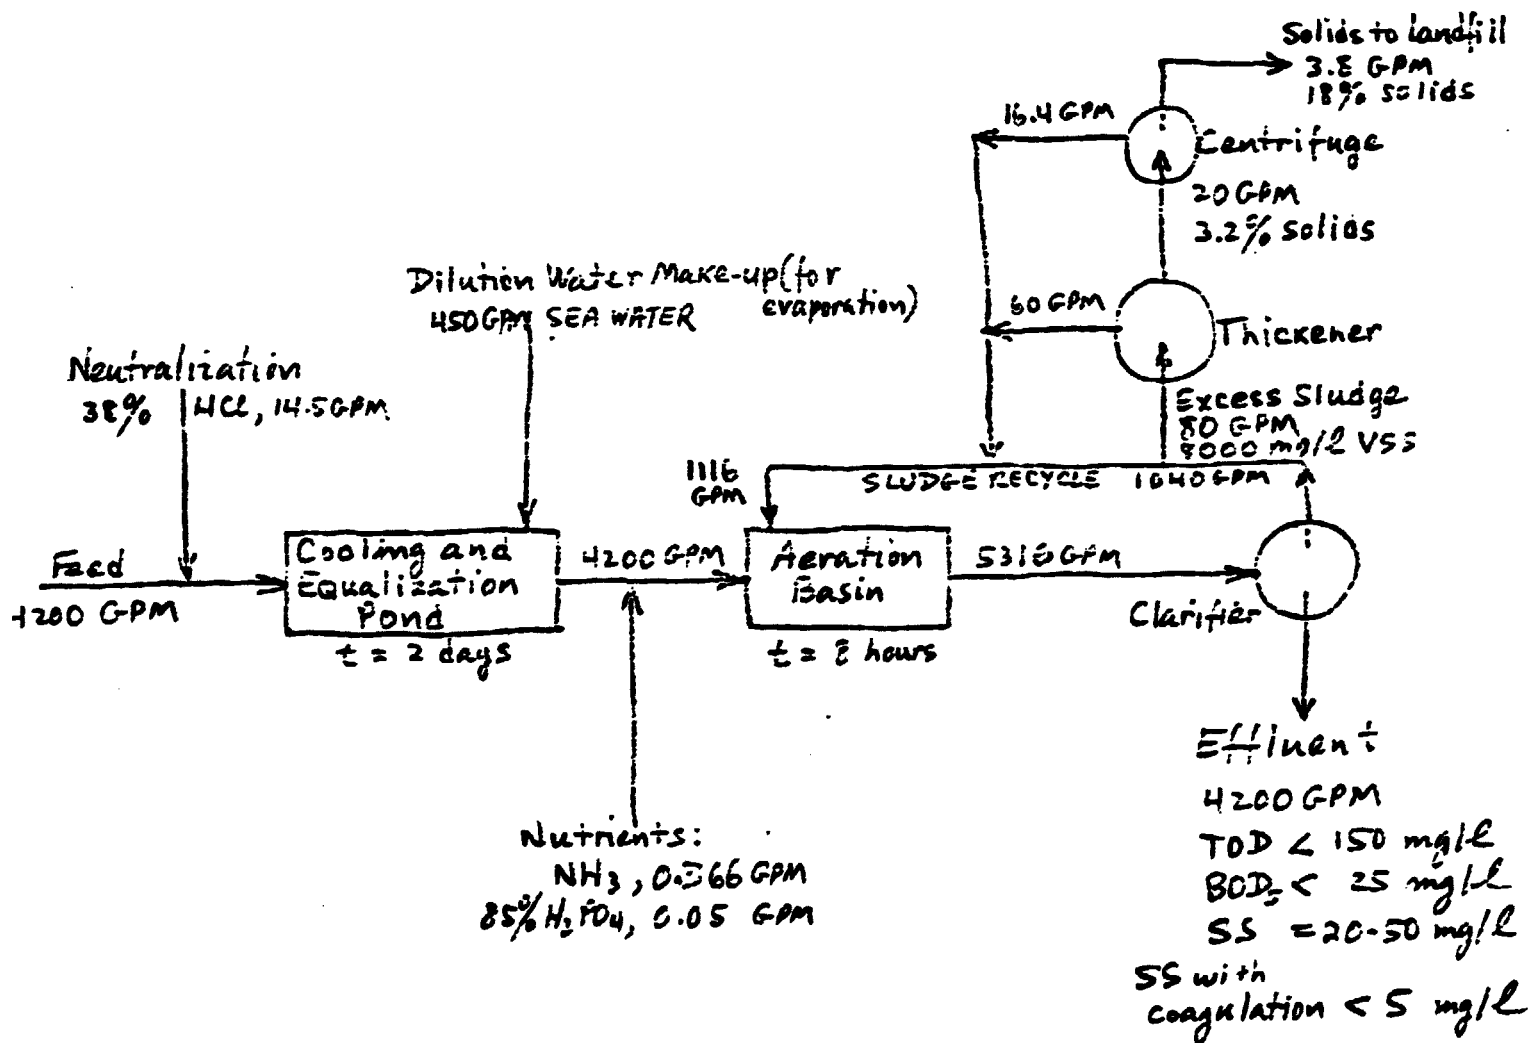 Solids to landfill
3.8 GPM
18% solids
16.4 GPM
Centrifuge
20 GPM
3.2% solids
Dilution Water Make-up (for
evaporation)
450 GPM SEA WATER
60 GPM
Thickener
Neutralization
38% HCl, 14.5 GPM
Excess Sludge
80 GPM
8000 mg/l VSS
1116
GPM
SLUDGE RECYCLE 1040 GPM
Feed
4200 GPM
Cooling and
Equalization
Pond
t = 2 days
4200 GPM
Aeration
Basin
t = 8 hours
5316 GPM
Clarifier
Effluent
4200 GPM
TOD < 150 mg/l
BOD5 < 25 mg/l
SS = 20-50 mg/l
SS with
coagulation < 5 mg/l
Nutrients:
NH3, GPM
85% PO4, 0.05 GPM